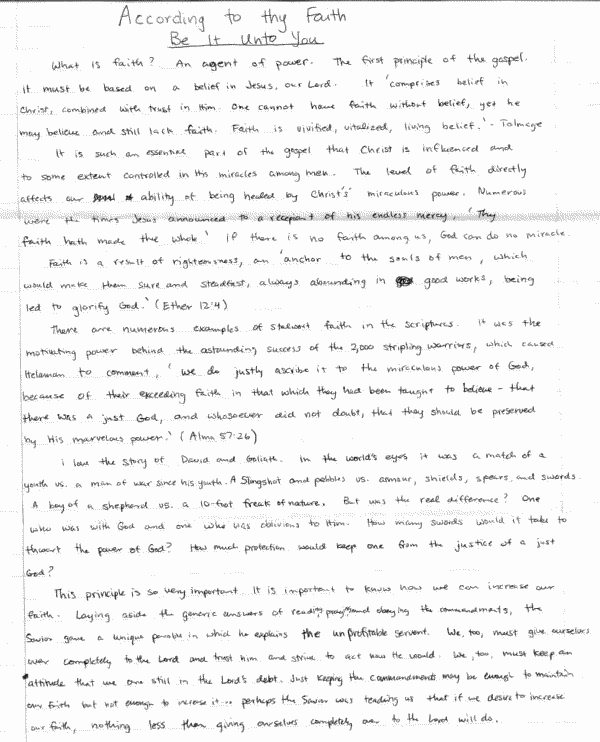 According to thy Faith
Be It Unto You
What is faith? An agent of power. The first principle of the gospel.
It must be based on a belief in Jesus, our Lord. It 'comprises belief in
Christ, combined with trust in Him. One cannot have faith without belief, yet he
may believe and still lack faith. Faith is vivified, vitalized, living belief.' - Talmage
It is such an essential part of the gospel that Christ is influenced and
to some extent controlled in His miracles among men. The level of faith directly
affects our ability of being healed by Christ's miraculous power. Numerous
were the times Jesus announced to a recepant of his endless mercy, 'Thy
faith hath made thee whole' if there is no faith among us, God can do no miracle.
Faith is a result of righteousness, an 'anchor to the souls of men, which
would make them sure and steadfast, always abounding in good works, being
led to glorify God.' (Ether 12:4)
There are numerous examples of stalwart faith in the scriptures. It was the
motivating power behind the astounding success of the 2,000 stripling warriors, which caused
Helaman to comment, 'we do justly ascribe it to the miraculous power of God,
because of their exceeding faith in that which they had been taught to believe - that
there was a just God, and whosoever did not doubt, that they should be preserved
by His marvelous power.' (Alma 57:26)
I love the story of David and Goliath. In the world's eyes it was a match of a
youth vs. a man of war since his youth. A Slingshot and pebbles vs. armour, shields, spears, and swords.
A boy of a shepherd vs. a 10-foot freak of nature. But was the real difference? One
who was with God and one who was oblivious to Him. How many swords would it take to
thwart the power of God? How much protection would keep one from the justice of a just
God?
This principle is so very important. It is important to know how we can increase our
faith. Laying aside the generic answers of reading, praying, and obeying the commandments, the
Savior gave a unique parable in which he explains the unprofitable servent. We, too, must give ourselves
over completely to the Lord and trust him and strive to act how He would. We, too, must keep an
attitude that we are still in the Lord's debt. Just keeping the commandments may be enough to maintain
our faith but not enough to increase it... perhaps the Savior was teaching us that if we desire to increase
our faith, nothing less than giving ourselves completely over to the Lord will do.